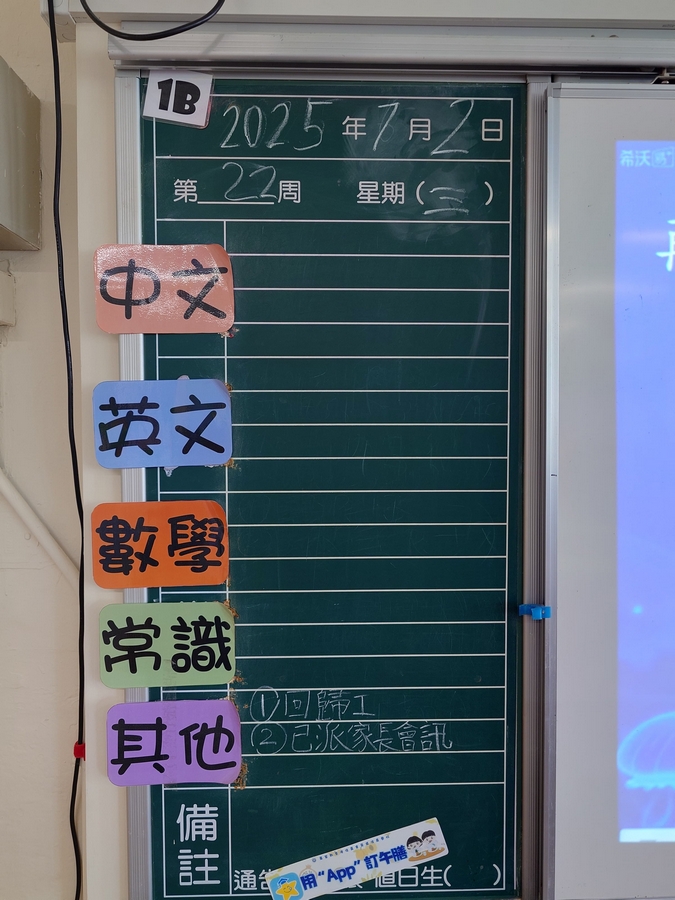 1B
2025 年 7 月 2 日
第 22 周 星期 (三)
中文
英文
數學
常識
其他
①回歸工
②已派家長會訊
備註
通告
值日生( )
用“App”訂午膳
希沃